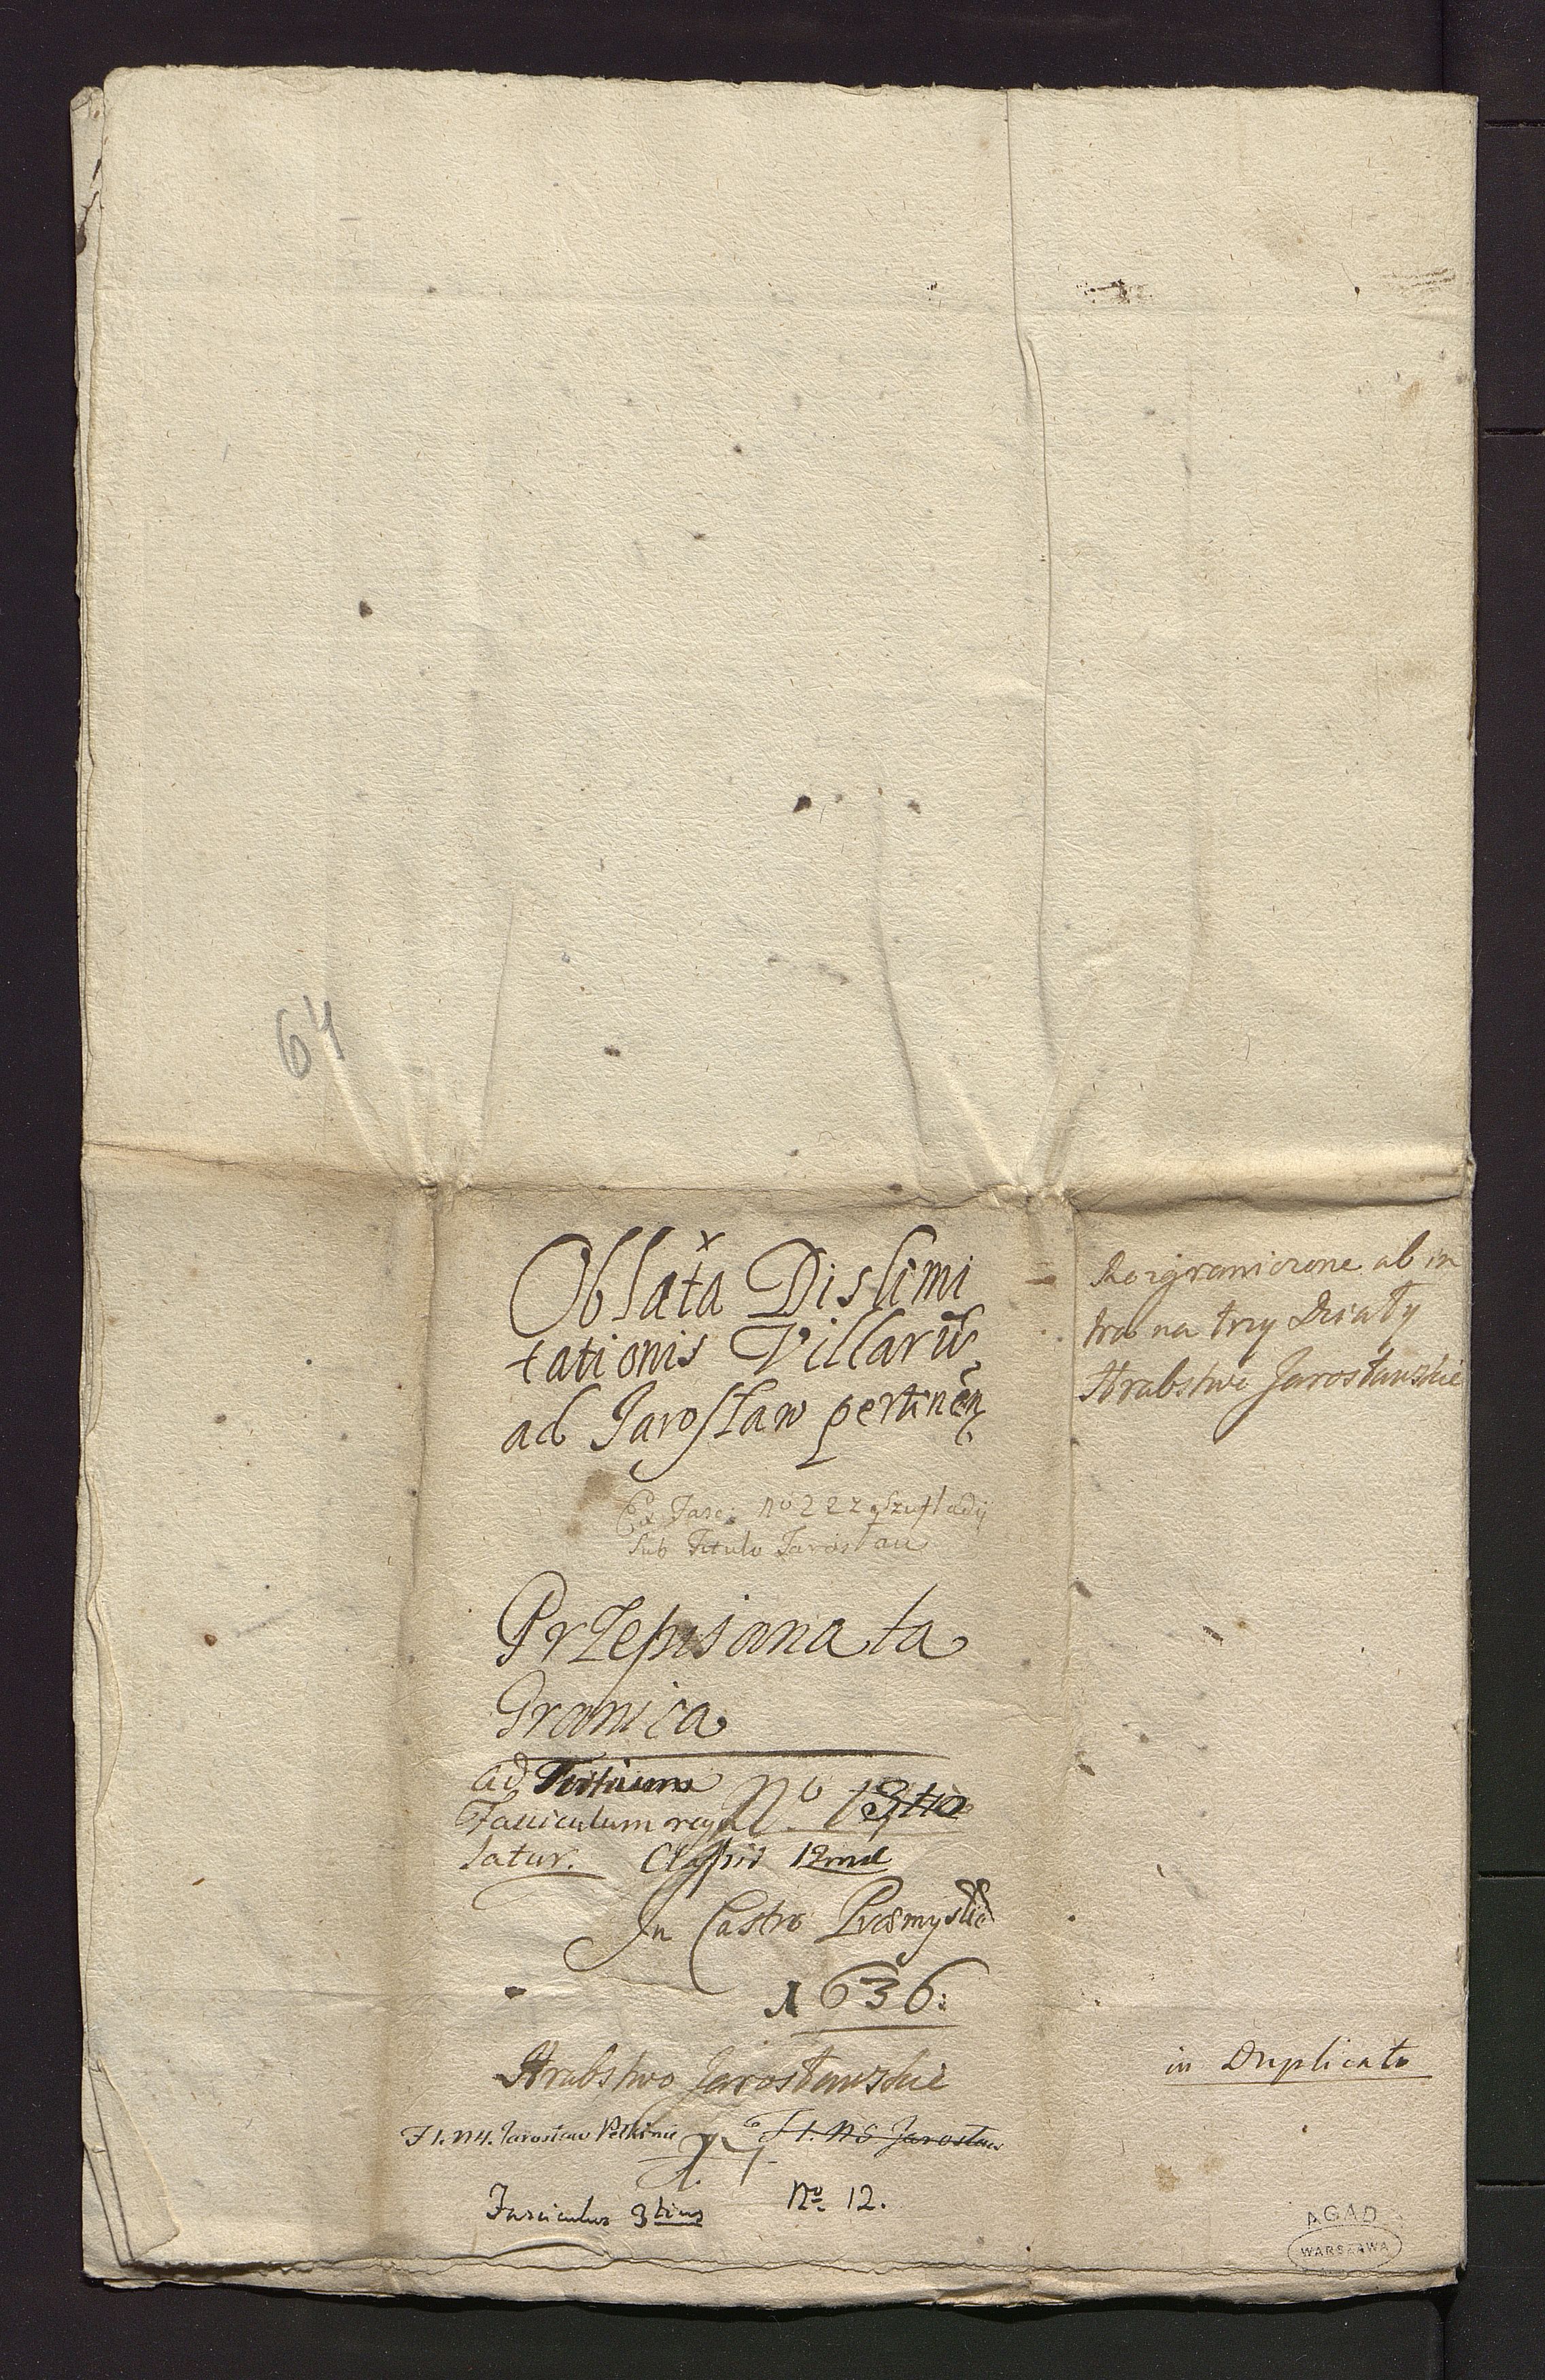 64
Oblata Dislimi
tationis Villarũ
ad Jarosław pertinẽn
Ex Fasc: No 222 Szufladij
Sub Titulo Jarosław
Przepisana ta
Granica
ad Tertium
Fasciculum regu No. 13tio
latur. Classis 12mæ
In Castro Præmysłiẽ
1636:
Hrabstwo Jarosławskie
F 1. N 4. Jarosław Pełkinie F 1. N 6 Jarosław
Fasciculus 3tius No 12.
Rozgraniczone ab in
tra na trzy Działy
Hrabstwo Jarosławskie
in Duplicato
AGAD
WARSZAWA